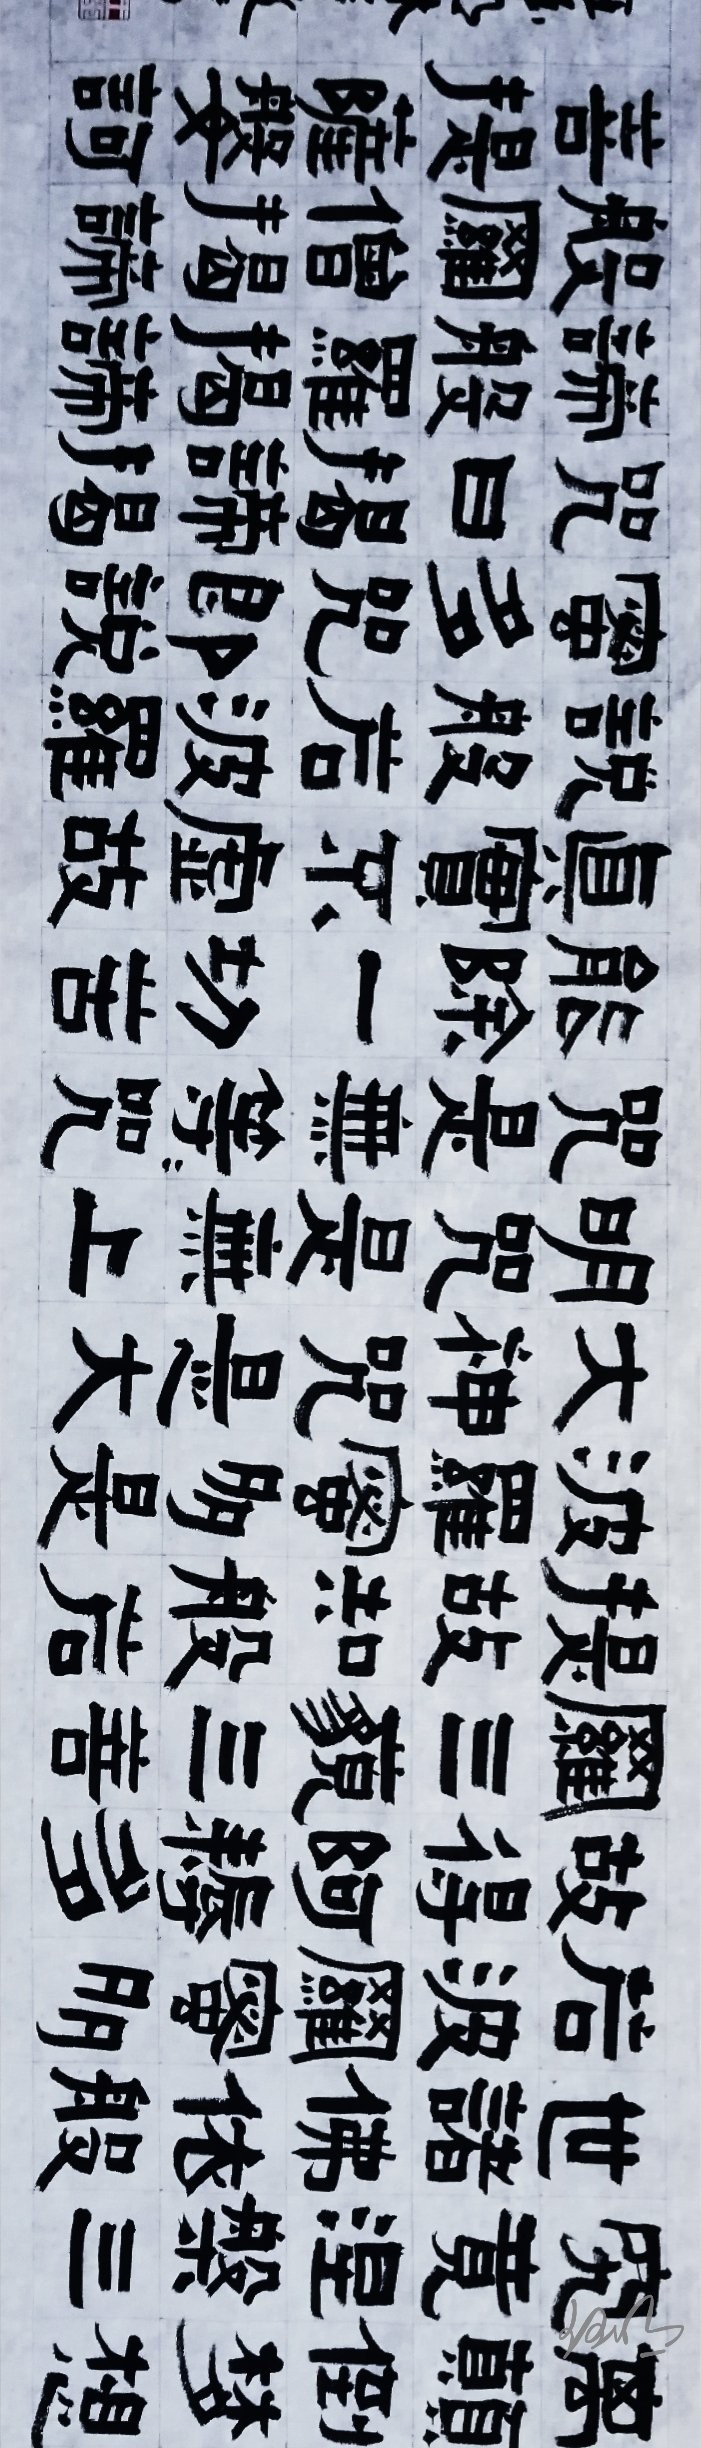 離顛倒夢想
究竟涅槃三
世諸佛依般
若波羅蜜多
故得阿耨多
羅三藐三菩
提故知般若
波羅蜜多是
大神咒是大
明咒是無上
咒是無等咒
能除一切苦
真實不虛故
說般若波羅
蜜多咒即說
咒曰揭諦揭
諦般羅揭諦
般羅僧揭諦
菩提薩媻訶